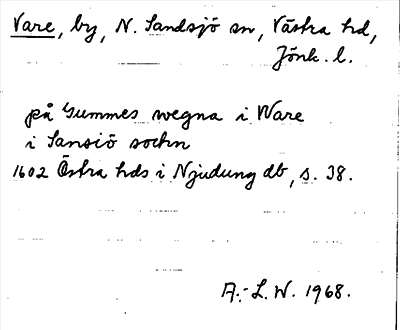 Vare, by, N. Sandsjö sn, Västra hd,
Jönk. l.
på Gummes wegna i Ware
i Sansiö sochn
1602 Östra hds i Njudung db, s. 38.
A.-L. W. 1968.